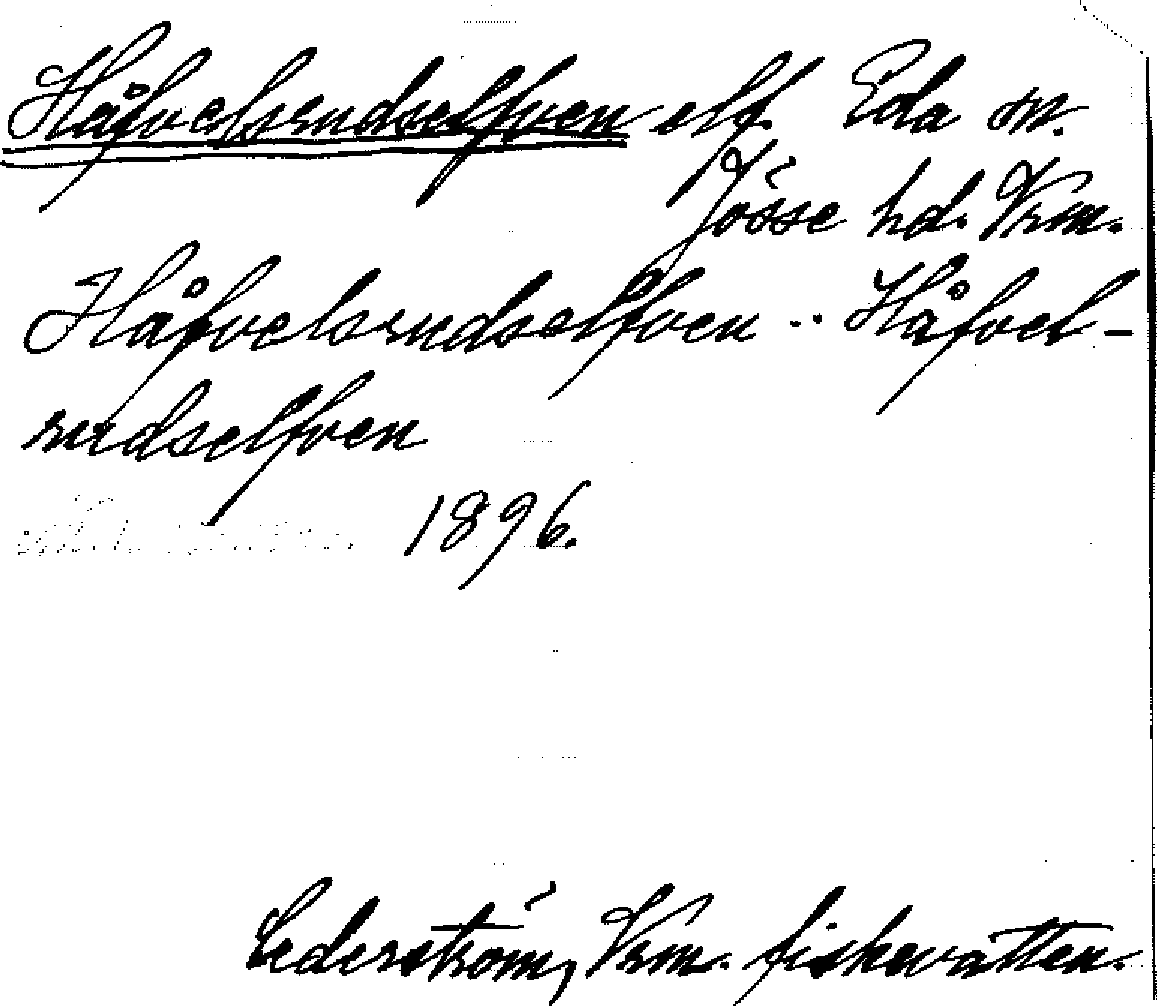 Håfvelsrudselfven elf. Eda sn.
Jösse hd. Vrm.
Håfvelsrudselfven .. Håfvel-
rudselfven
1896.
Cederström, Vrm. fiskevatten.